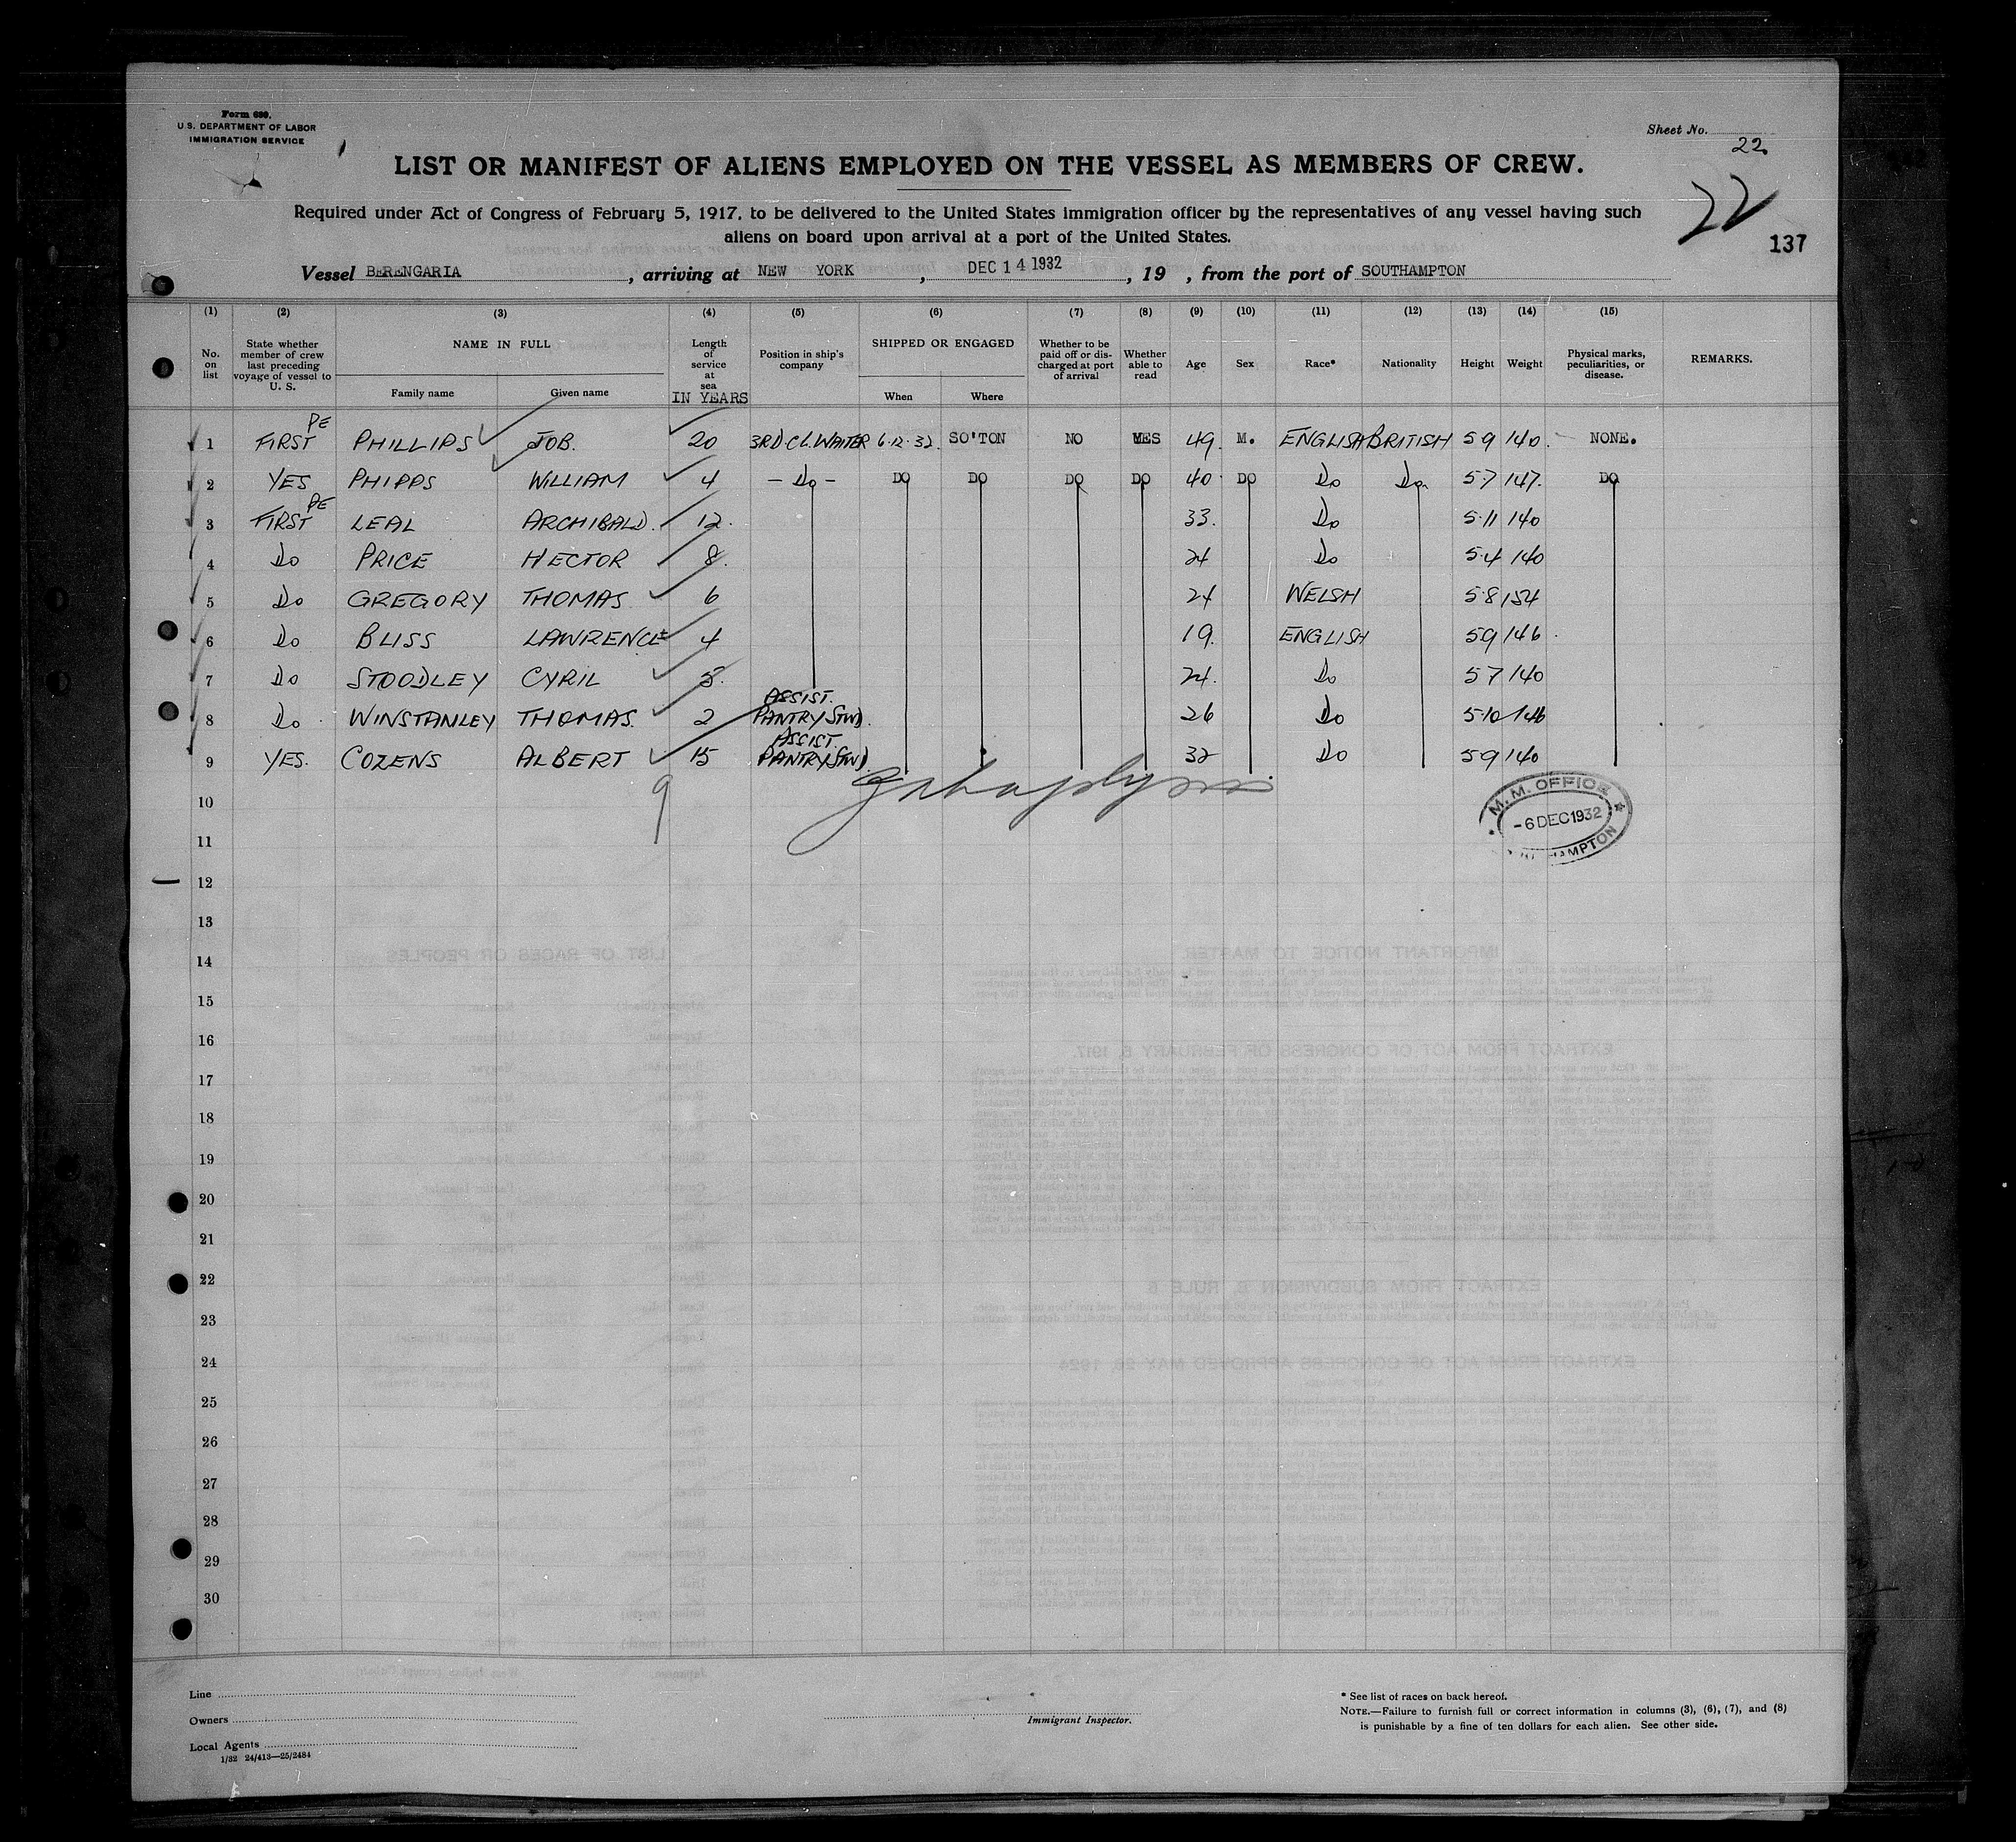 Form 680.
U.S. DEPARTMENT OF LABOR
IMMIGRATION SERVICE
Sheet No.
22
LIST OR MANIFEST OF ALIENS EMPLOYED ON THE VESSEL AS MEMBERS OF CREW.
22
Required under Act of Congress of February 5, 1917, to be delivered to the United States immigration officer by the representatives of any vessel having such
aliens on board upon arrival at a port of the United States.
137
Vessel BERENGARIA, arriving at NEW YORK, DEC 14 1932, 19 , from the port of SOUTHAMPTON
(1) (2) (3) (4) (5) (6) (7) (8) (9) (10) (11) (12) (13) (14) (15)
No. on list
State whether member of crew last preceding voyage of vessel to U. S.
NAME IN FULL
Family name Given name
Length of service at sea IN YEARS
Position in ship's company
SHIPPED OR ENGAGED
When Where
Whether to be paid off or discharged at port of arrival
Whether able to read
Age
Sex
Race*
Nationality
Height
Weight
Physical marks, peculiarities, or disease.
REMARKS.
PE
1 FIRST PHILLIPS JOB. 20 3RD. CL. WAITER 6.12.32. SO'TON NO YES 49. M. ENGLISH BRITISH 5 9 140. NONE.
2 YES PHIPPS WILLIAM 4 - Do - DO DO DO DO 40 DO Do Do 5.7 147. DO
PE
3 FIRST LEAL ARCHIBALD. 12. 33. Do 5.11 140
4 Do PRICE HECTOR 8. 24 Do 5.4 140
5 Do GREGORY THOMAS 6 24 WELSH 5.8 154
6 Do BLISS LAWRENCE 4 19. ENGLISH 5 9 146
7 Do STOODLEY CYRIL 24. Do 5 7 140
8 Do WINSTANLEY THOMAS. 2 ASSIST. PANTRY STWD. 26 Do 5.10 146
9 YES. COZENS ALBERT 15 ASSIST. PANTRY STWD. 32 Do 5 9 140
9
10
11
12
13
14
15
16
17
18
19
20
21
22
23
24
25
26
27
28
29
30
M. M. OFFICE
-6 DEC 1932
Line
Owners
Local Agents
1/32 24/413—25/2484
Immigrant Inspector.
* See list of races on back hereof.
NOTE.—Failure to furnish full or correct information in columns (3), (6), (7), and (8)
is punishable by a fine of ten dollars for each alien. See other side.